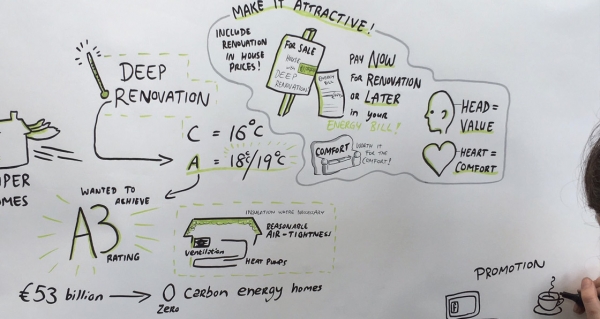 MAKE IT ATTRACTIVE!
INCLUDE
RENOVATION
IN HOUSE
PRICES!
FOR SALE
HOUSE
with
DEEP
RENOVATION
ENERGY
BILL
PAY NOW
FOR RENOVATION
OR LATER
in your
ENERGY BILL!
COMFORT
WORTH IT
FOR THE
COMFORT!
HEAD =
VALUE
HEART =
COMFORT
DEEP
RENOVATION
C = 16°C
A = 18°C/19°C
WANTED TO
ACHIEVE
A3
RATING
WHERE NECESSARY
REASONABLE
AIR-TIGHTNESS
ventilation
HEAT PUMPS
€53 billion → 0 Carbon energy homes
ZERO
PROMOTION